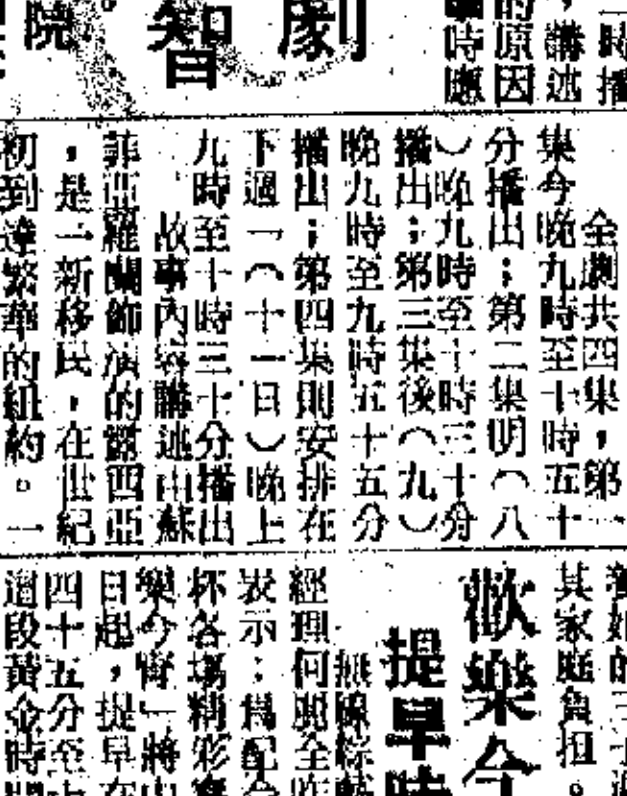 時播
，講述
的原因
時應
劇
智
院
全劇共四集，第一
集今晚九時至十時五十
分播出；第二集明（八
）晚九時至十時三十分
播出；第三集後（九）
晚九時至九時五十五分
播出；第四集則安排在
下週一（十一日）晚上
九時至十時三十分播出
故事內容講述由蘇
菲亞羅蘭飾演的露西亞
，是一新移民，在世紀
初到達繁華的紐約。一
的三
其家庭負担。
歡樂今
提早時
無線綜藝
經理何麗全昨
表示：為配合
杯各場精彩賽
樂今宵」將由
日起，提早在
四十五分至十
這段黃金時間